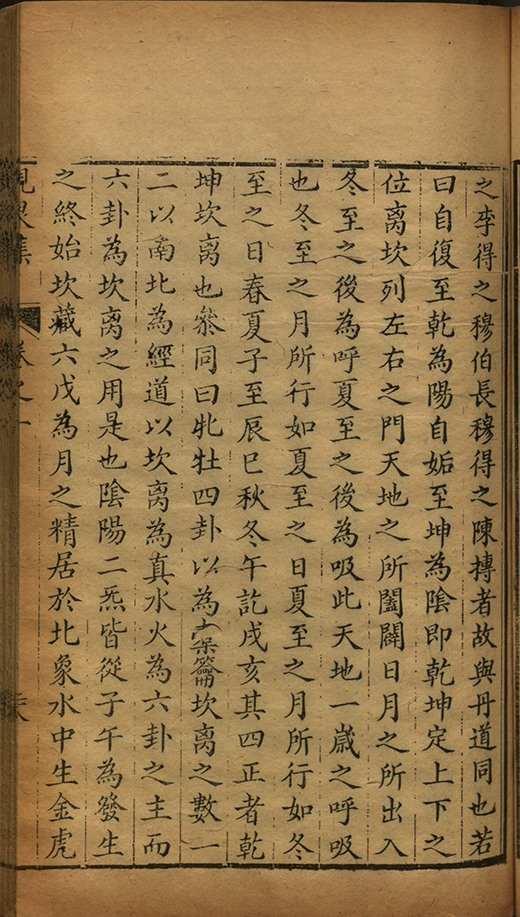 之李得之穆伯長穆得之陳摶者故與丹道同也若
曰自復至乾為陽自姤至坤為陰即乾坤定上下之
位离坎列左右之門天地之所闔闢日月之所出入
冬至之後為呼夏至之後為吸此天地一歲之呼吸
也冬至之月所行如夏至之日夏至之月所行如冬
至之日春夏子至辰巳秋冬午訖戌亥其四正者乾
坤坎离也叅同曰牝牡四卦以為橐籥坎离之數一
二以南北為經道以坎离為真水火為六卦之主而
六卦為坎离之用是也陰陽二炁皆從子午為發生
之終始坎藏六戊為月之精居於北象水中生金虎